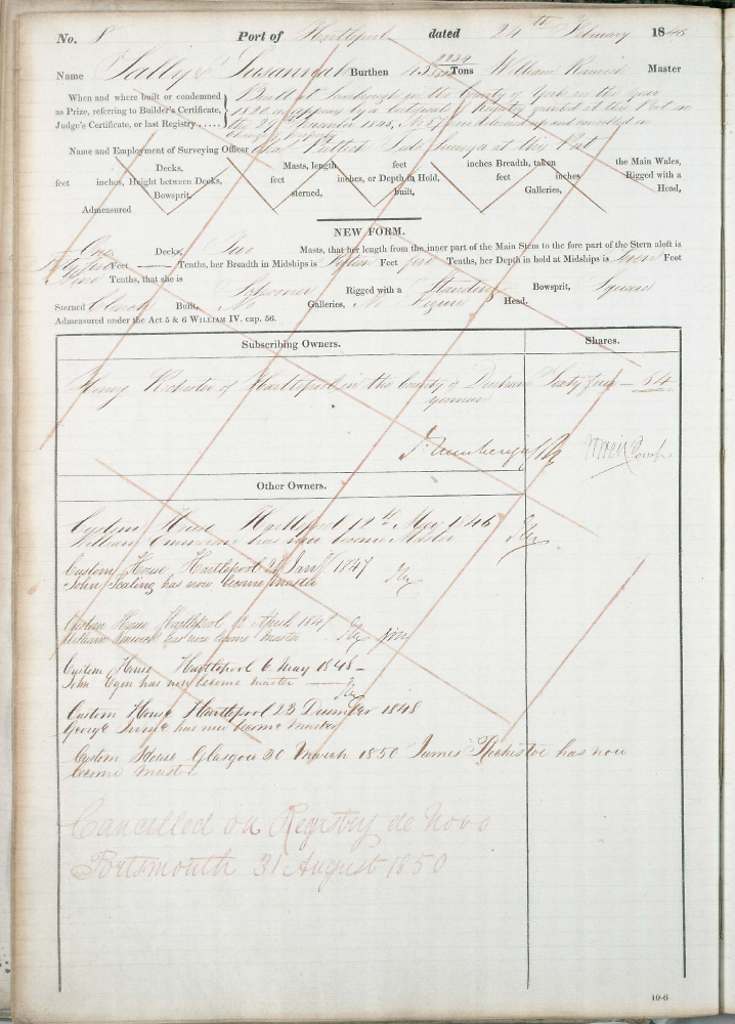 No. 8 Port of Hartlepool dated 24th February 1846
Name Sally & Susannah Burthen Tons William Master
When and where built or condemned
as Prize, referring to Builder's Certificate,
Judge's Certificate, or last Registry.....
Built at in the County of York in the year
appears by a Certificate of Registry granted at this Port
the 29 1845, No 57 delivered up and cancelled
Name and Employment of Surveying Officer Tide Surveyor at this Port
Decks, Masts, length feet inches Breadth, taken the Main Wales,
feet inches, Height between Decks, feet inches, or Depth in Hold, feet inches Rigged with a
Bowsprit, sterned, built, Galleries, Head,
Admeasured
NEW FORM.
One Decks, Two Masts, that her length from the inner part of the Main Stem to the fore part of the Stern aloft is
Feet Tenths, her Breadth in Midships is Fifteen Feet Tenths, her Depth in hold at Midships is Feet
Tenths, that she is Schooner Rigged with a Standing Bowsprit, Square
Sterned Built, No Galleries, No Figure Head.
Admeasured under the Act 5 & 6 WILLIAM IV. cap. 56.
Subscribing Owners. Shares.
Henry of Hartlepool in the County of Durham Sixty four — 64
Other Owners.
Custom House Hartlepool 12th May 1846
William has now become Master
Custom House Hartlepool 1847
John has now become Master
Custom House Hartlepool April 1847
William has now become Master
Custom House Hartlepool 6 May 1848 —
John Egen has now become master
Custom House Hartlepool 22 December 1848
George has now become Master
Custom House Glasgow 30 March 1850 James has now
become Master
Cancelled on Registry de Novo
Portsmouth 31 August 1850
10-6